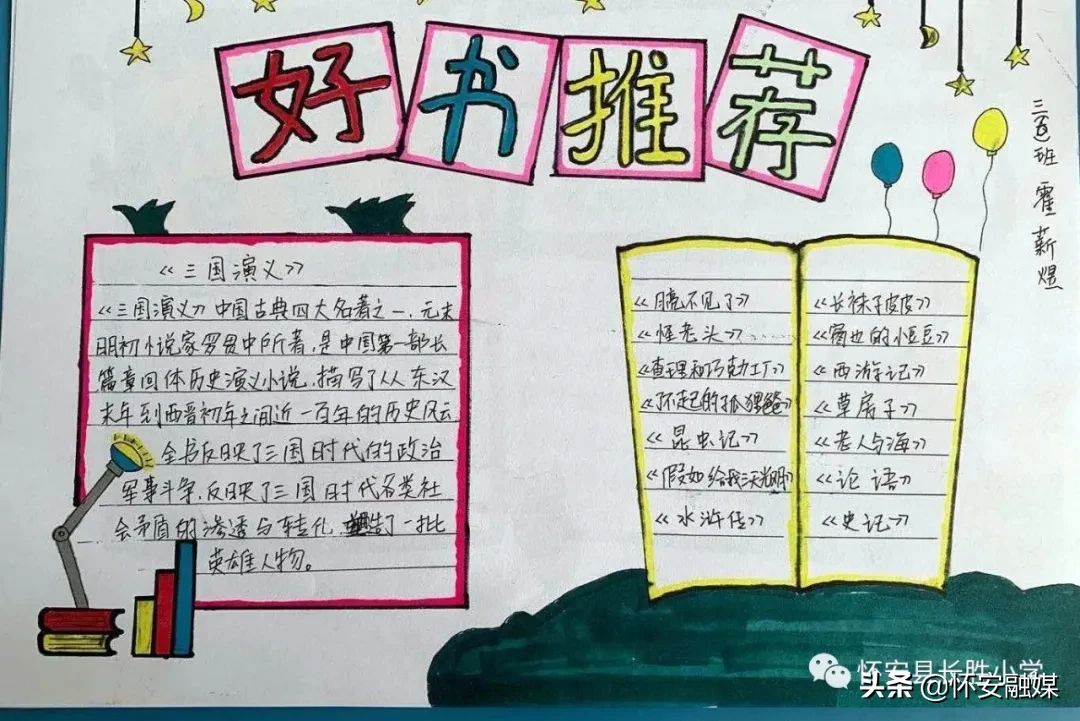 好书推荐
三(2)班 霍薪煜
《三国演义》
《三国演义》中国古典四大名著之一.元末
明初小说家罗贯中所著,是中国第一部长
篇章回体历史演义小说,描写了从东汉
末年到西晋初年之间近一百年的历史风云
全书反映了三国时代的政治
军事斗争,反映了三国时代各类社
会矛盾的渗透与转化,塑造了一批
英雄人物。
《月亮不见了》
《怪老头》
《查理和巧克力工厂》
《了不起的狐狸爸爸》
《昆虫记》
《假如给我三天光明》
《水浒传》
《长袜子皮皮》
《窗边的小豆豆》
《西游记》
《草房子》
《老人与海》
《论语》
《史记》
怀安县长胜小学
头条 @怀安融媒